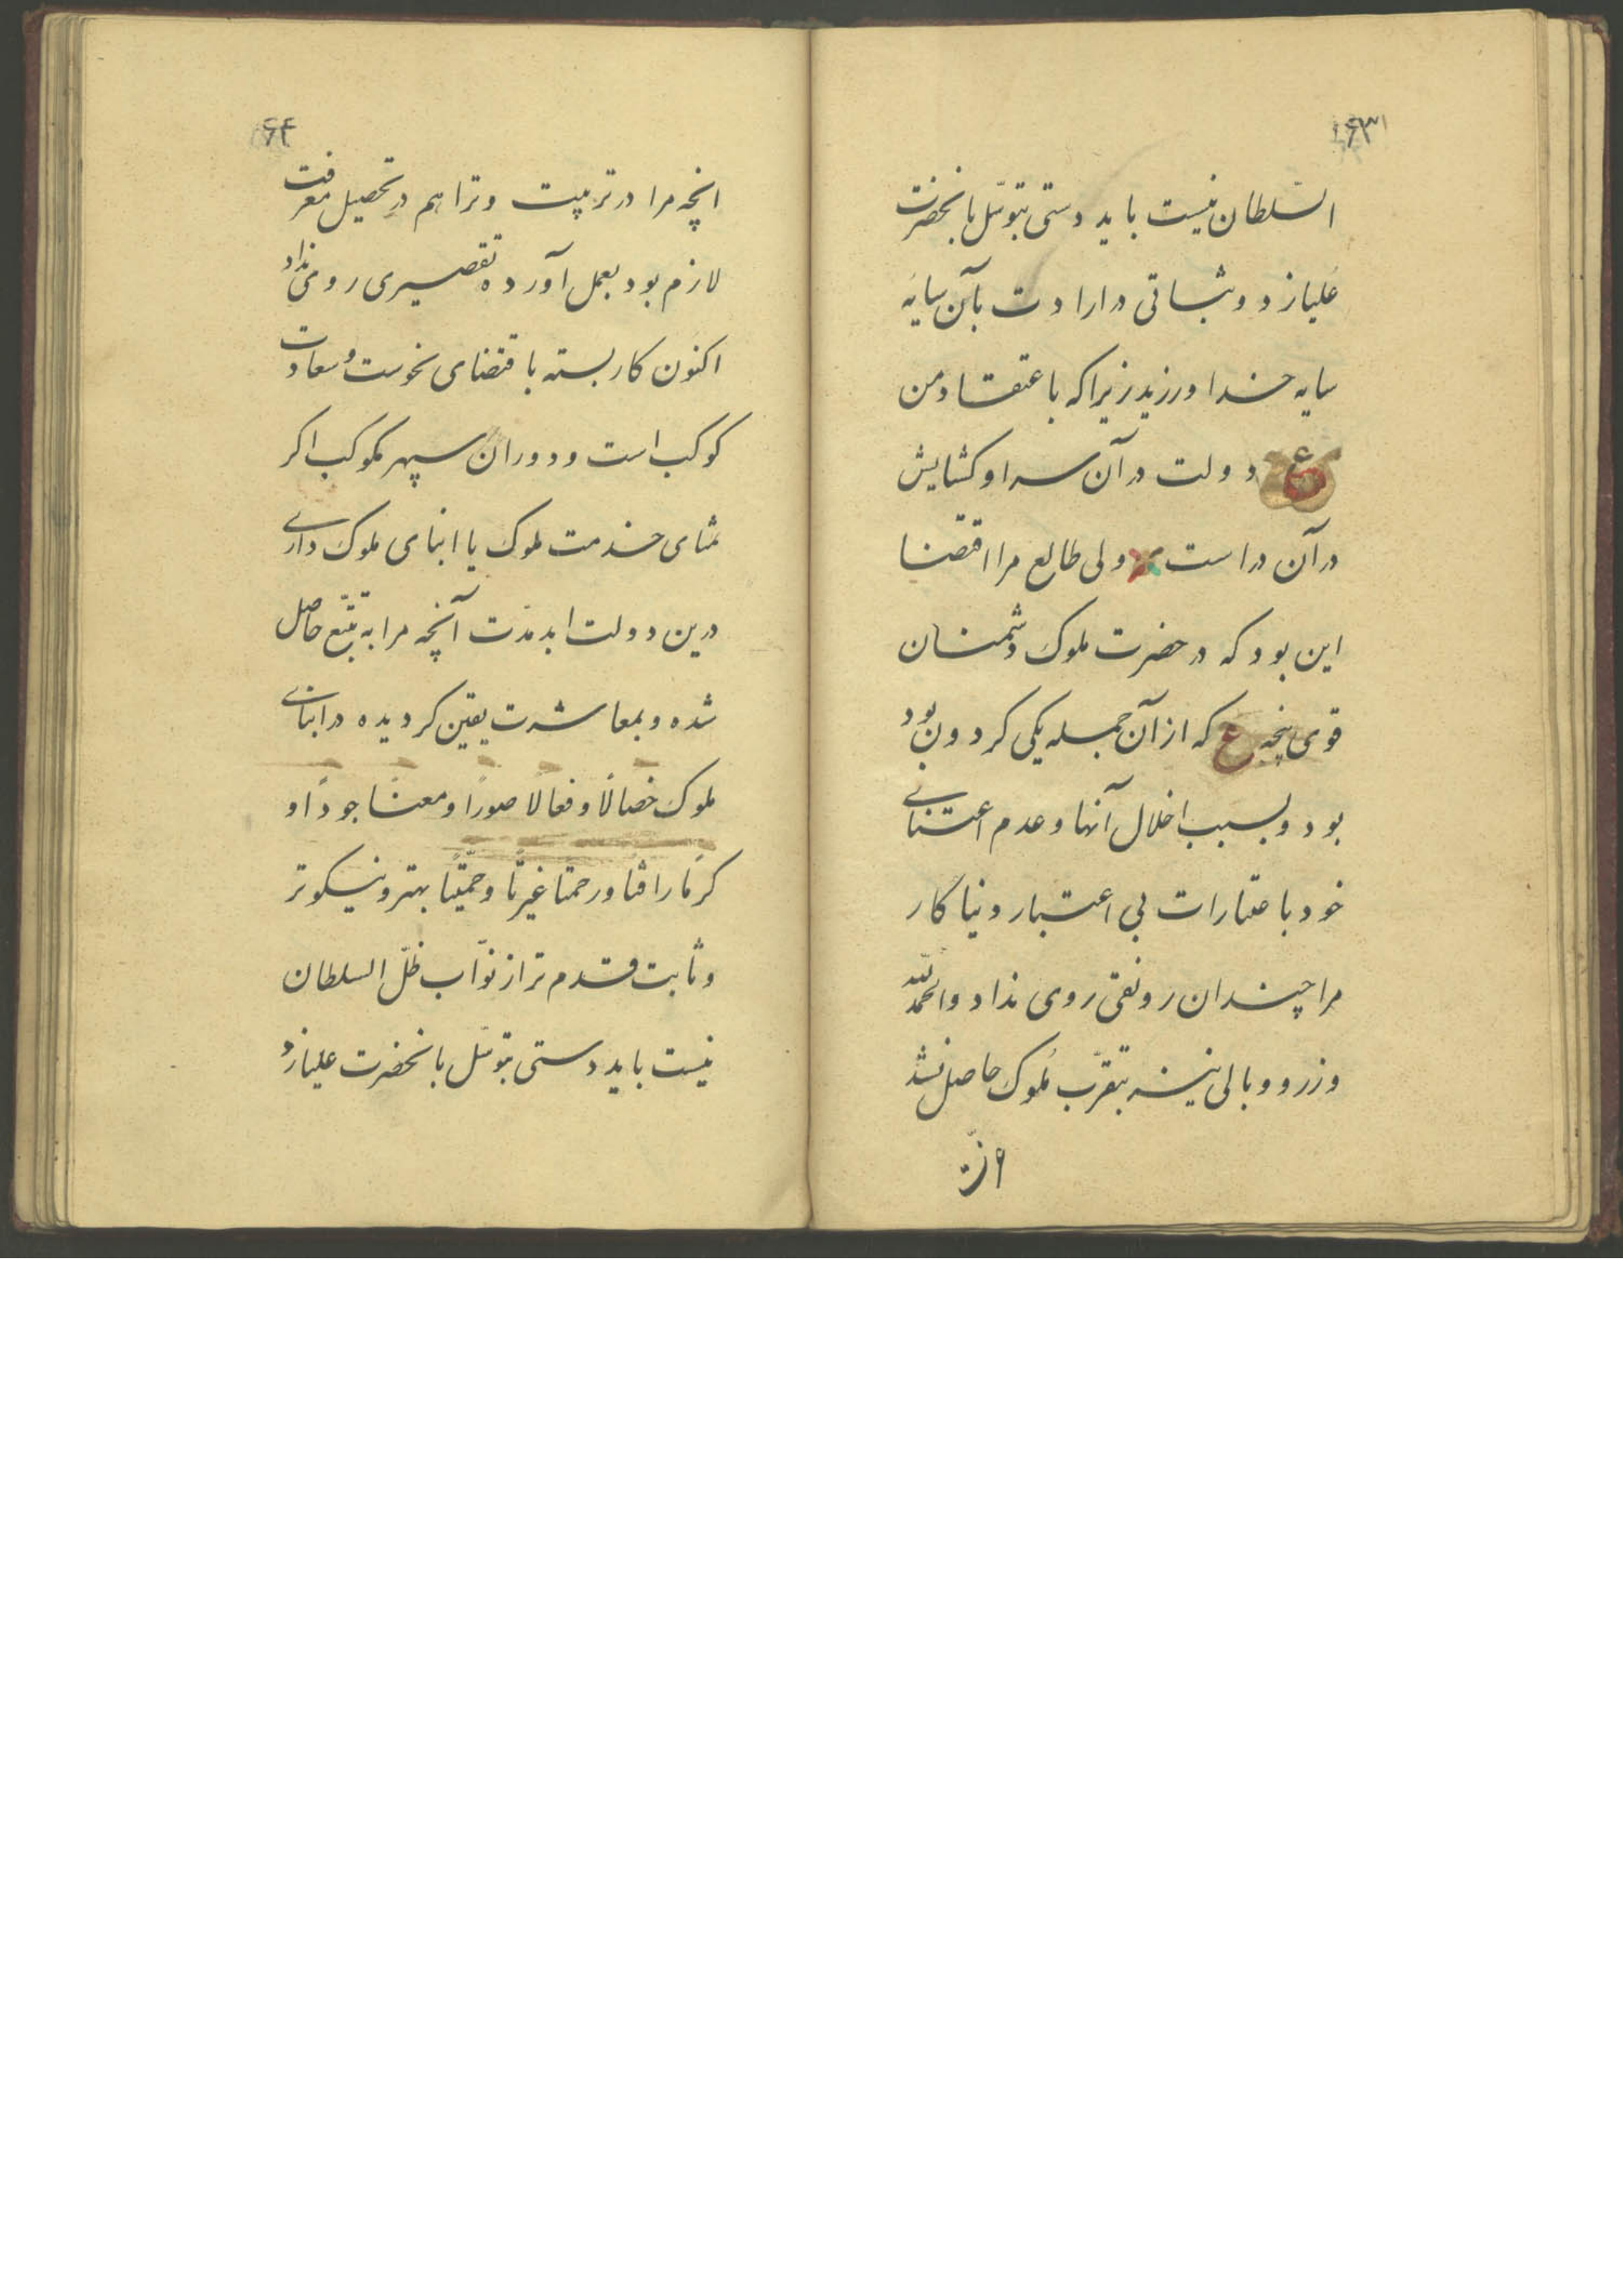 ۶۳
السّلطان نیست باید دستی بتوسّل بانحضرت
علیازد و ثباتی در ارادت بآن سایهٔ
سایه خدا ورزید زیرا که باعتقاد من
ع دولت در آن سرا و کشایش
در آن در است ولی طالع مرا اقتضا
این بود که در حضرت ملوک دشمنان
قوی پنجه ع که از آن جمله یکی کردون بود
بود و بسبب اخلال آنها و عدم اعتنای
خود با عتبارات بی اعتبار دنیا کار
مرا چندان رونقی روی نداد والحمدلله
وزر و وبالی نیز بتقرّب ملوک حاصل نشد
۶۴
انچه مرا در تربیت و ترا هم در تحصیل معرفت
لازم بود بعمل آورده تقصیری روی نداد
اکنون کار بسته باقتضای نحوست و سعادت
کوکب است و دوران سپهر مکوکب اکر
تمنای خدمت ملوک یا ابنای ملوک داری
درین دولت ابد مدّت آنچه مرا به تتبّع حاصل
شده و بمعاشرت یقین کردیده در ابنای
ملوک خصالًا و فعالًا صورًا و معنًا جودًا و
کرمًا رافتًا و رحمتًا غیرتًا و حمیّتًا بهتر و نیکوتر
و ثابت قدم تر از نوّاب ظلّ السلطان
نیست باید دستی بتوسّل بانحضرت علیازد